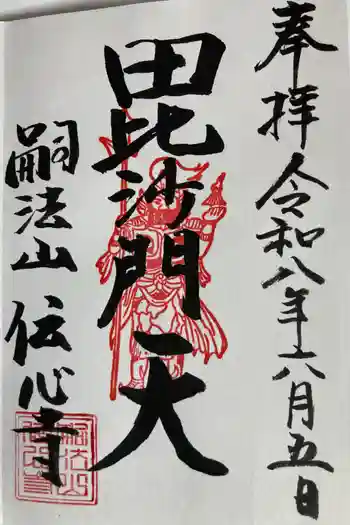 奉拝 令和八年六月五日
毘沙門天
嗣法山 伝心寺